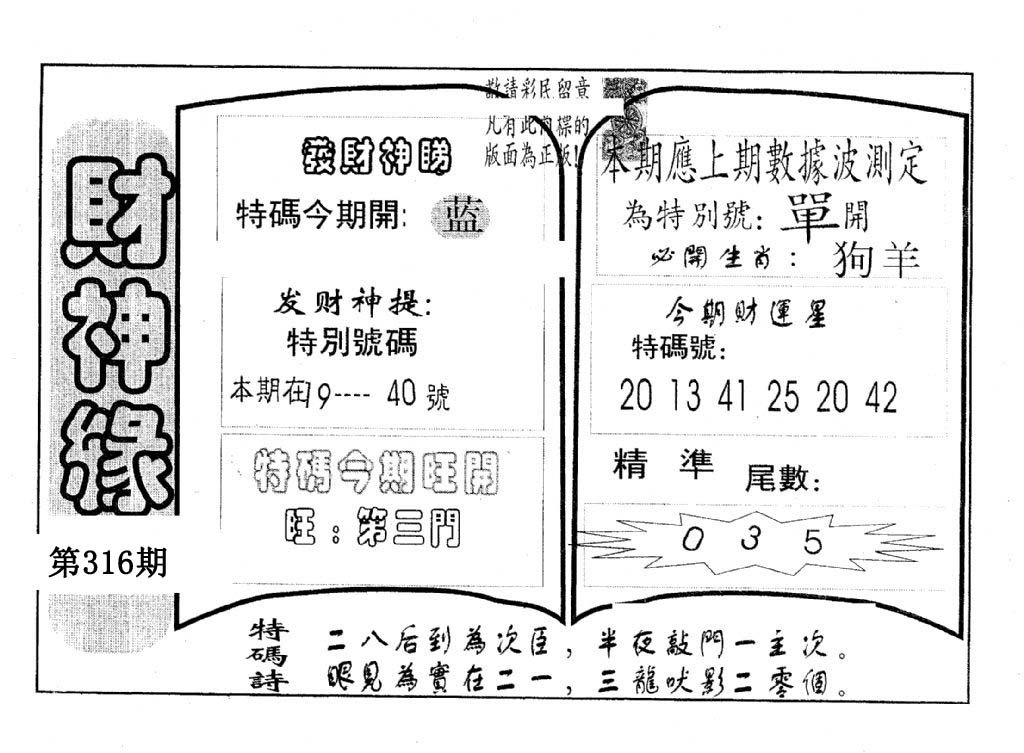 財神緣
第316期
敬請彩民留意
凡有此商標的
版面為正版!
發財神睇
特碼今期開: 蓝
发财神提:
特別號碼
本期在19---- 40號
特碼今期旺開
旺:第三門
本期應上期數據波測定
為特別號: 單開
必開生肖: 狗羊
今期財運星
特碼號:
20 13 41 25 20 42
精準
尾數:
0 3 5
特碼詩
二八后到為次臣,半夜敲門一主次。
眼見為實在二一,三龍吠影二零個。